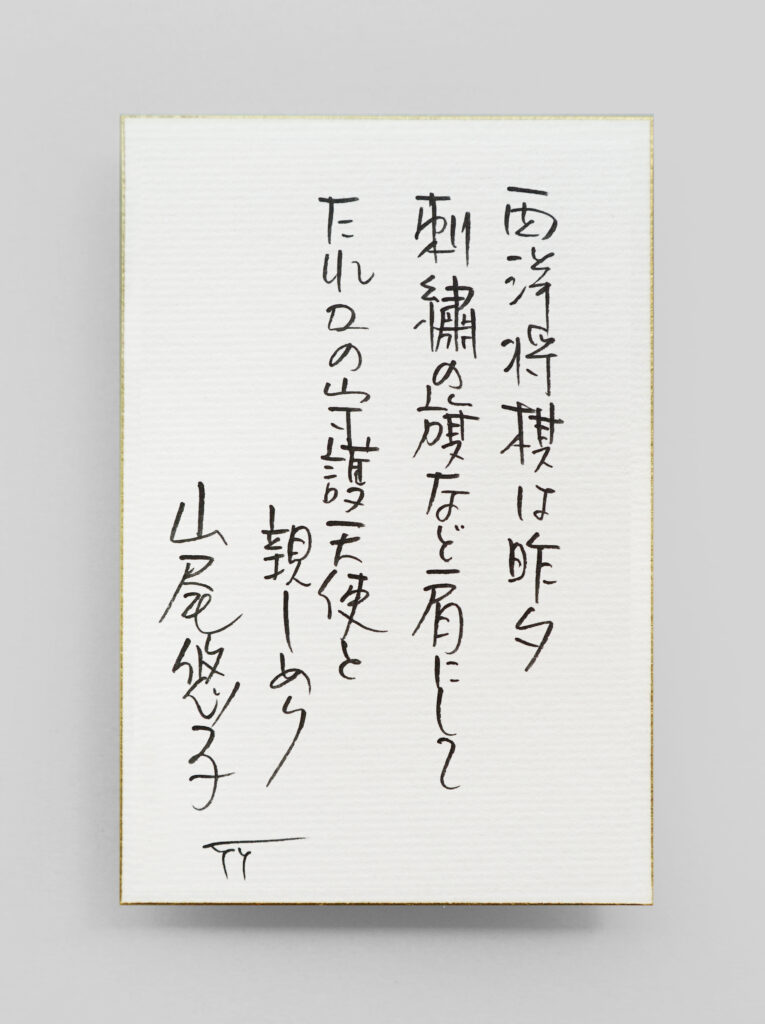 西洋将棋は昨夕
刺繡の旗など肩にして
たれかの守護天使と
親しめり
山尾悠子
YY